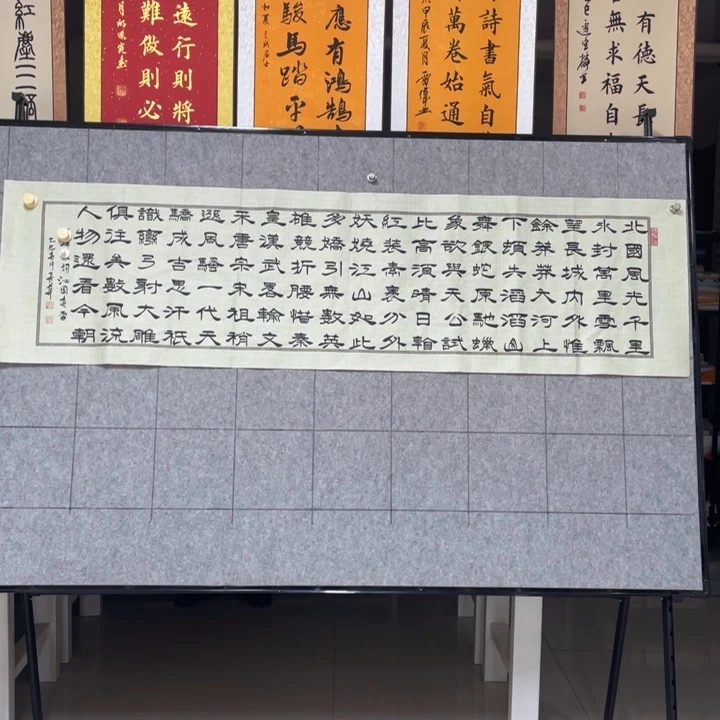 有德天長
無求福自
詩書氣自
萬卷始通
應有鴻鵠
駿馬踏平
遠行則將
難做則必
紅塵三
北國風光千里
冰封萬里雪飄
望長城內外惟
餘莽莽大河上
下頓失滔滔山
舞銀蛇原馳蠟
象欲與天公試
比高須晴日看
紅裝素裹分外
妖嬈江山如此
多嬌引無數英
雄競折腰惜秦
皇漢武略輸文
采唐宗宋祖稍
遜風騷一代天
驕成吉思汗祇
識彎弓射大雕
俱往矣數風流
人物還看今朝
沁園春雪